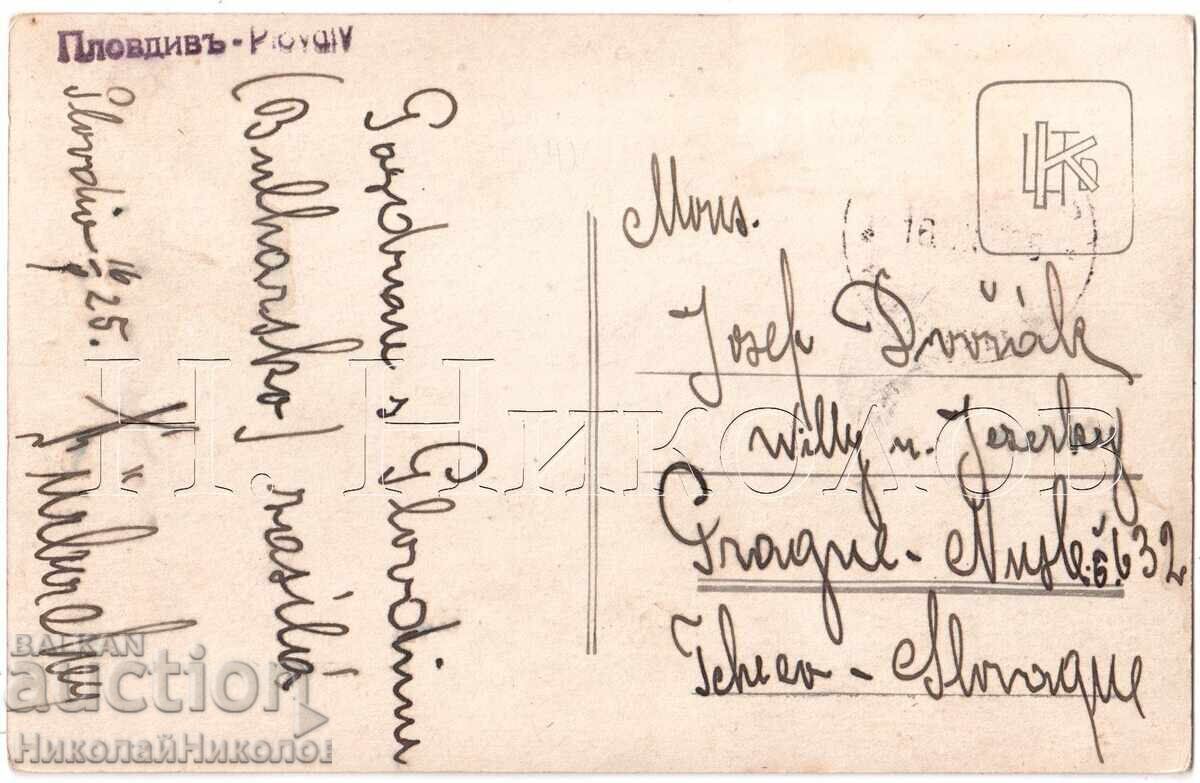 Пловдивъ - Plovdiv
Pozdrav z Plovdivu
(Bulharsko) zasílá
Plovdiv 16/9 25.
Mons.
Josef Dvořák
Willy u. Jezerky
Prague - Nusle č. 632
Tchéco - Slovaque
16
Н. Николов
BALKAN
auction
НиколайНиколов